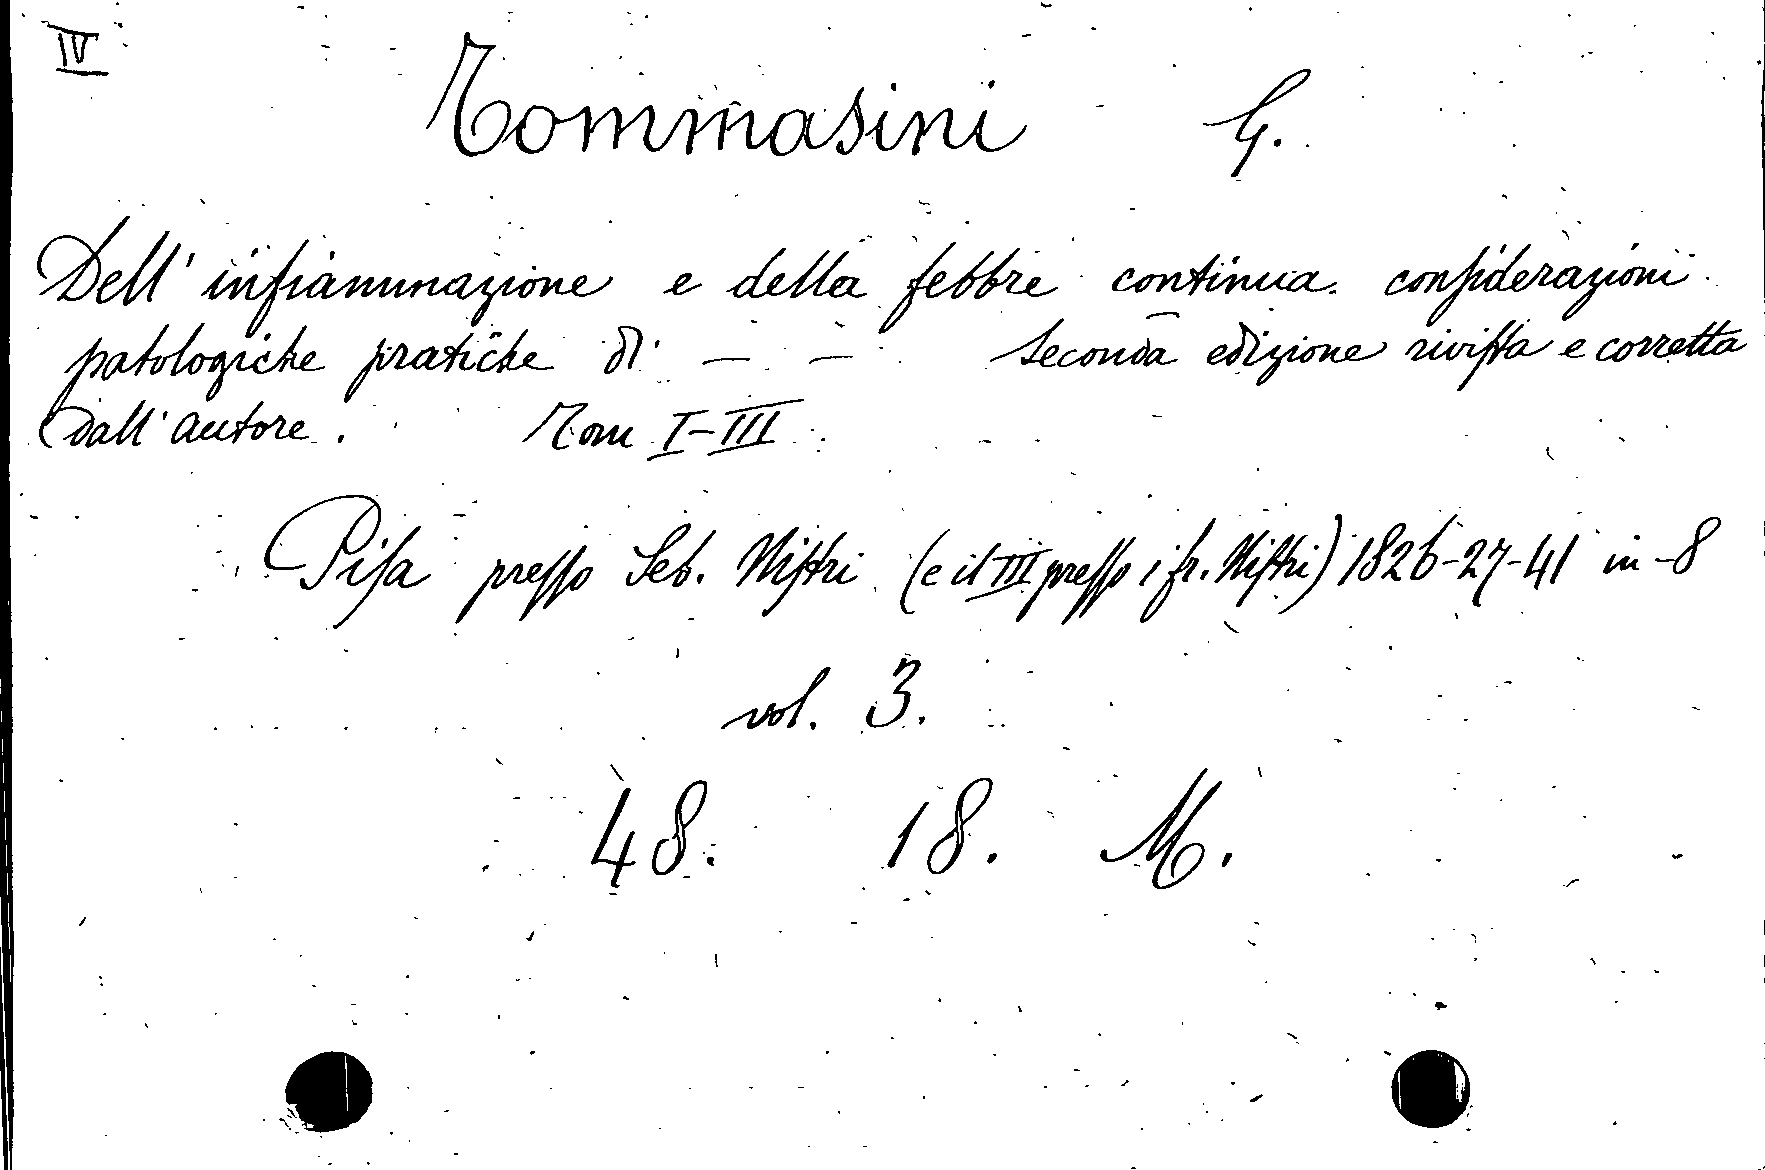 IV
Tommasini G.
Dell' infiammazione e della febbre continua. considerazioni
patologiche pratiche di — — Seconda edizione rivista e corretta
dall' autore. Tom I-III
Pisa presso Seb. Nistri (e il III presso i fr. Nistri) 1826-27-41 in-8
vol. 3.
48. 18. M.